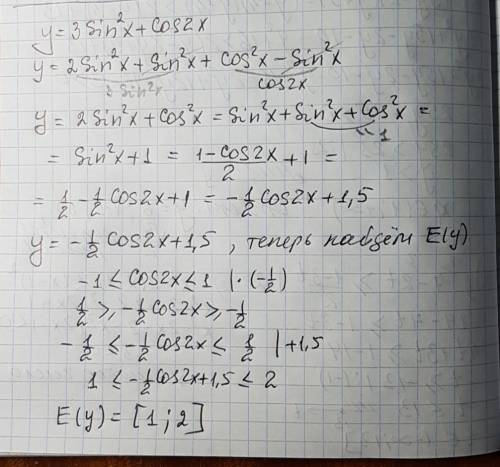 y = 3 Sin²x + Cos2x
y = 2Sin²x + Sin²x + Cos²x − Sin²x
2 Sin²x cos2x
y = 2 Sin²x + Cos²x = Sin²x + Sin²x + Cos²x =
"1
= Sin²x + 1 = (1 − Cos2x)/2 + 1 =
= 1/2 − 1/2 Cos2x + 1 = − 1/2 Cos2x + 1,5
y = − 1/2 Cos2x + 1,5 , теперь найдём E(y)
−1 ≤ Cos2x ≤ 1 | · (− 1/2)
1/2 ≥ − 1/2 Cos2x ≥ − 1/2
− 1/2 ≤ − 1/2 Cos2x ≤ 1/2 | +1,5
1 ≤ − 1/2 Cos2x + 1,5 ≤ 2
E(y) = [1 ; 2]